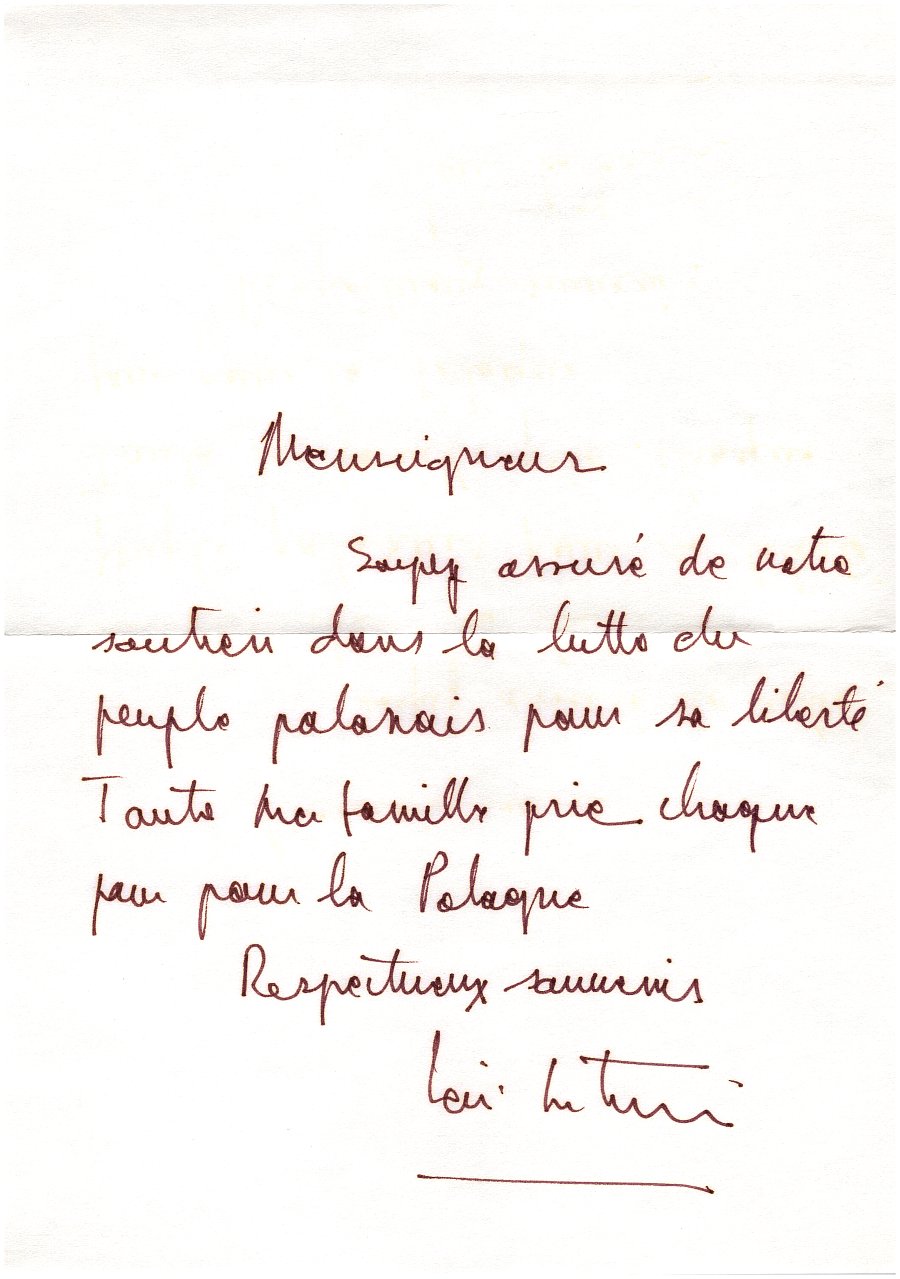 Monseigneur
Soyez assuré de notre
soutien dans la lutte du
peuple polonais pour sa liberté
Toute ma famille prie chaque
jour pour la Pologne
Respectueux souvenirs